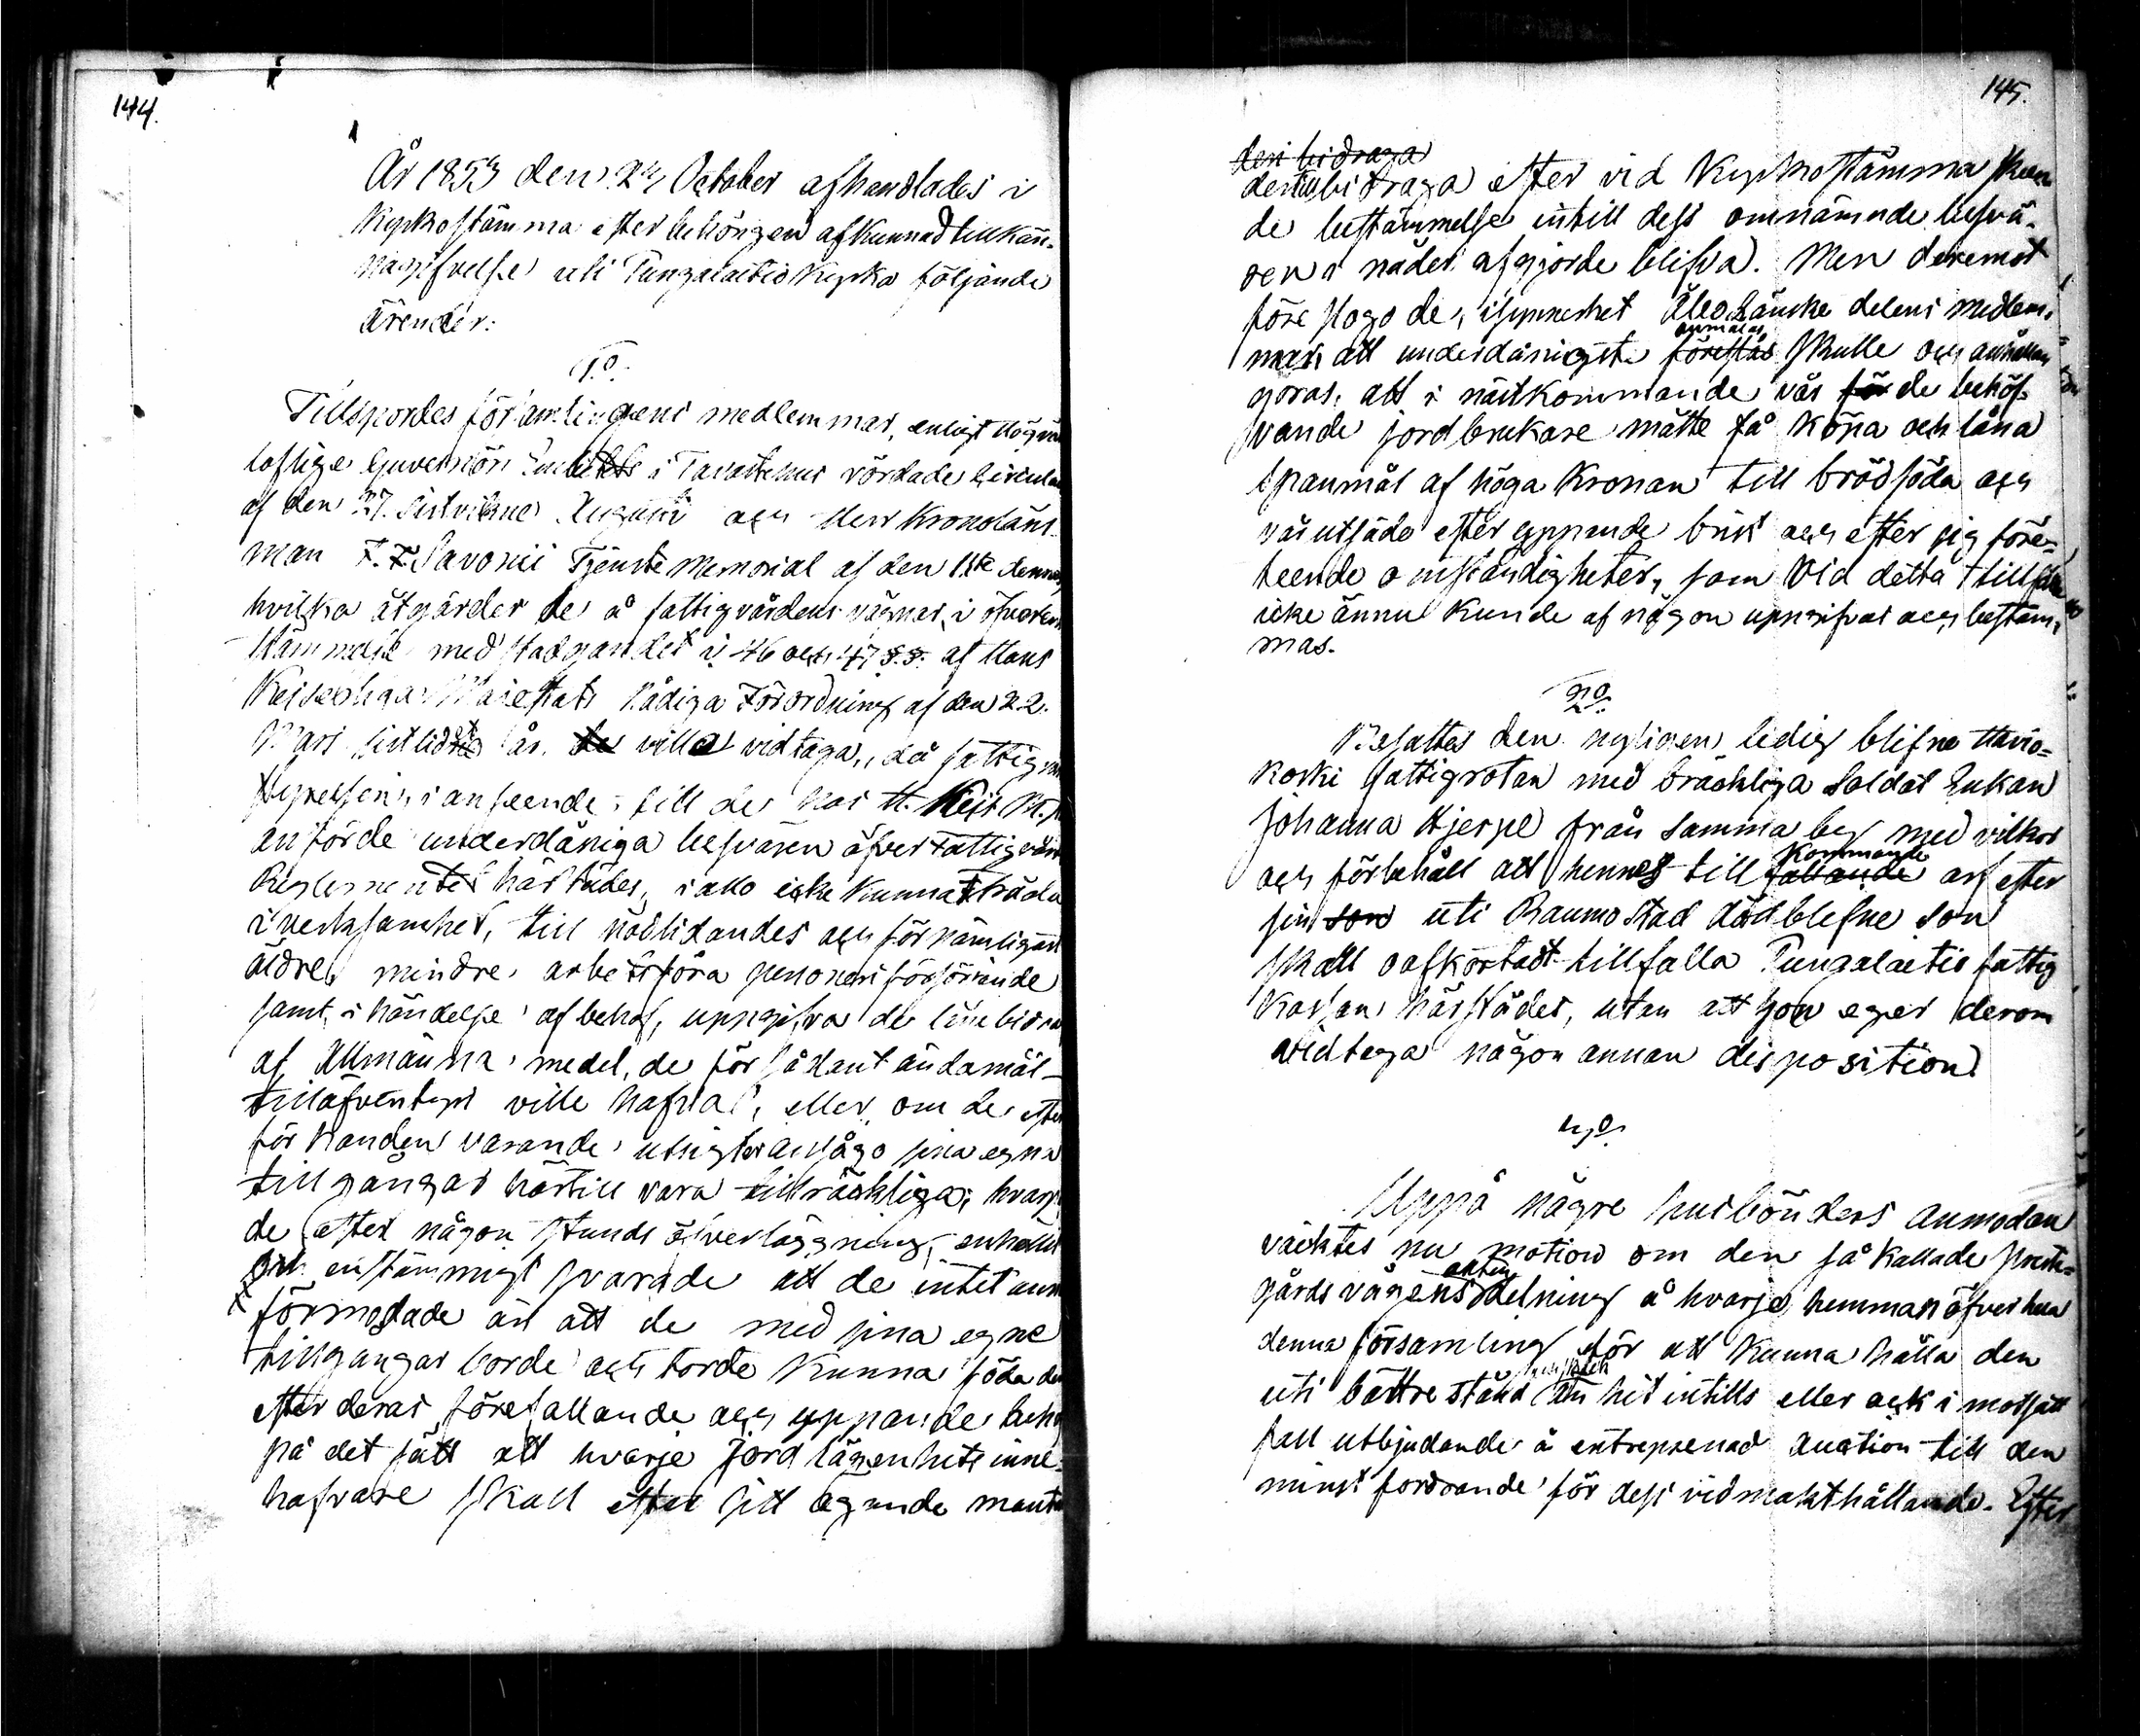 144.
År 1853 den 2 October afhandlades i
Kyrkostämma efter behörigen afkunnad tillkän-
nagifvelse uti Tungelaitio Kyrka följande
Ärender:
1:o
Tillspordes församlingens medlemmar, enligt Högväl
loflige Guvernörs Embetets i Tavastehus vördade Circulair
af den 27. sistvikne Augusti och Herr Kronoläns-
man F. F. Savonii Tjenste Memorial af den 11te dennes
hvilka åtgärder de å fattigvårdens vägnar, i öfverens
stämmelse med stadgandet i 46 och 47 §.§. af Hans
Keiserliga Majestäts Nådiga Förordning af den 22.
Mars sistlidet år, ville vidtaga, då fattigvårds
styrelsen, i anseende till de hos H. Keis. M.
anförde underdåniga besvären öfver Fattigvårds
Reglementet härstädes, icke kunnat träda
i verksamhet, till nödlidandes och förnämligast
äldre, mindre arbetsföra personers försörjande
samt, i händelse af behof, uppgifva de lånebidrag
af Allmänna medel, de för sådant ändamål
tilläfventyrs ville hafva, eller om de efter
för handen varande utsigter ansågo sina egna
tillgångar härtill vara tillräckliga; hvarpå
de efter någon stunds öfverläggning, enhälligt
och enstämmigt svarade att de intet annat
förmodade än att de med sina egne
tillgångar borde och torde kunna föda de
efter deras förefallande och yppande behof
på det sätt att hvarje jord lägenhets inne-
hafvare skall efter sitt egande mantal
145.
deri bidraga
dertill bidraga efter vid Kyrkostämma skeen
de bestämmelse intill dess omnämnde besvä-
ren i nåder afgjorde blifva. Men deremot
före slogo de, isynnerhet Åbo Länske delens medlem-
mar, att underdånigste förestås anmälas skulle och anhållan
göras, att i nästkommande vår för de behöf-
vande jordbrukare måtte få köpa och låna
spanmål af höga Kronan till brödföda och
vårutsäde efter yppande brist och efter sig före-
teende omständigheter, som vid detta tillfälle
icke ännu kunde af någon uppgifvas och bestäm-
mas.
2:o
Besattes den nyligen ledig blifne Havio-
koski fattigrotan med bräckliga Soldat Enkan
Johanna Hjerpe från samma by med vilkor
och förbehåll att hennes till fallande kommande arf efter
sin son uti Raumo Stad död blefne son
skall oafkortadt tillfalla Pungalaitio fattig
kassan härstädes, utan att hon eger derom
vidtaga någon annan disposition.
3:o
Uppå någre husbönders anmodan
väcktes nu motion om den så kallade Prest-
gårds vägens delning å hvarje hemman öfver hela
denna församling för att kunna hålla den
uti bättre stånd än hit intills eller ock i motsatt
fall utbjudande å entreprenad auction till den
minst fordrande för dess vidmakthållande. Efter